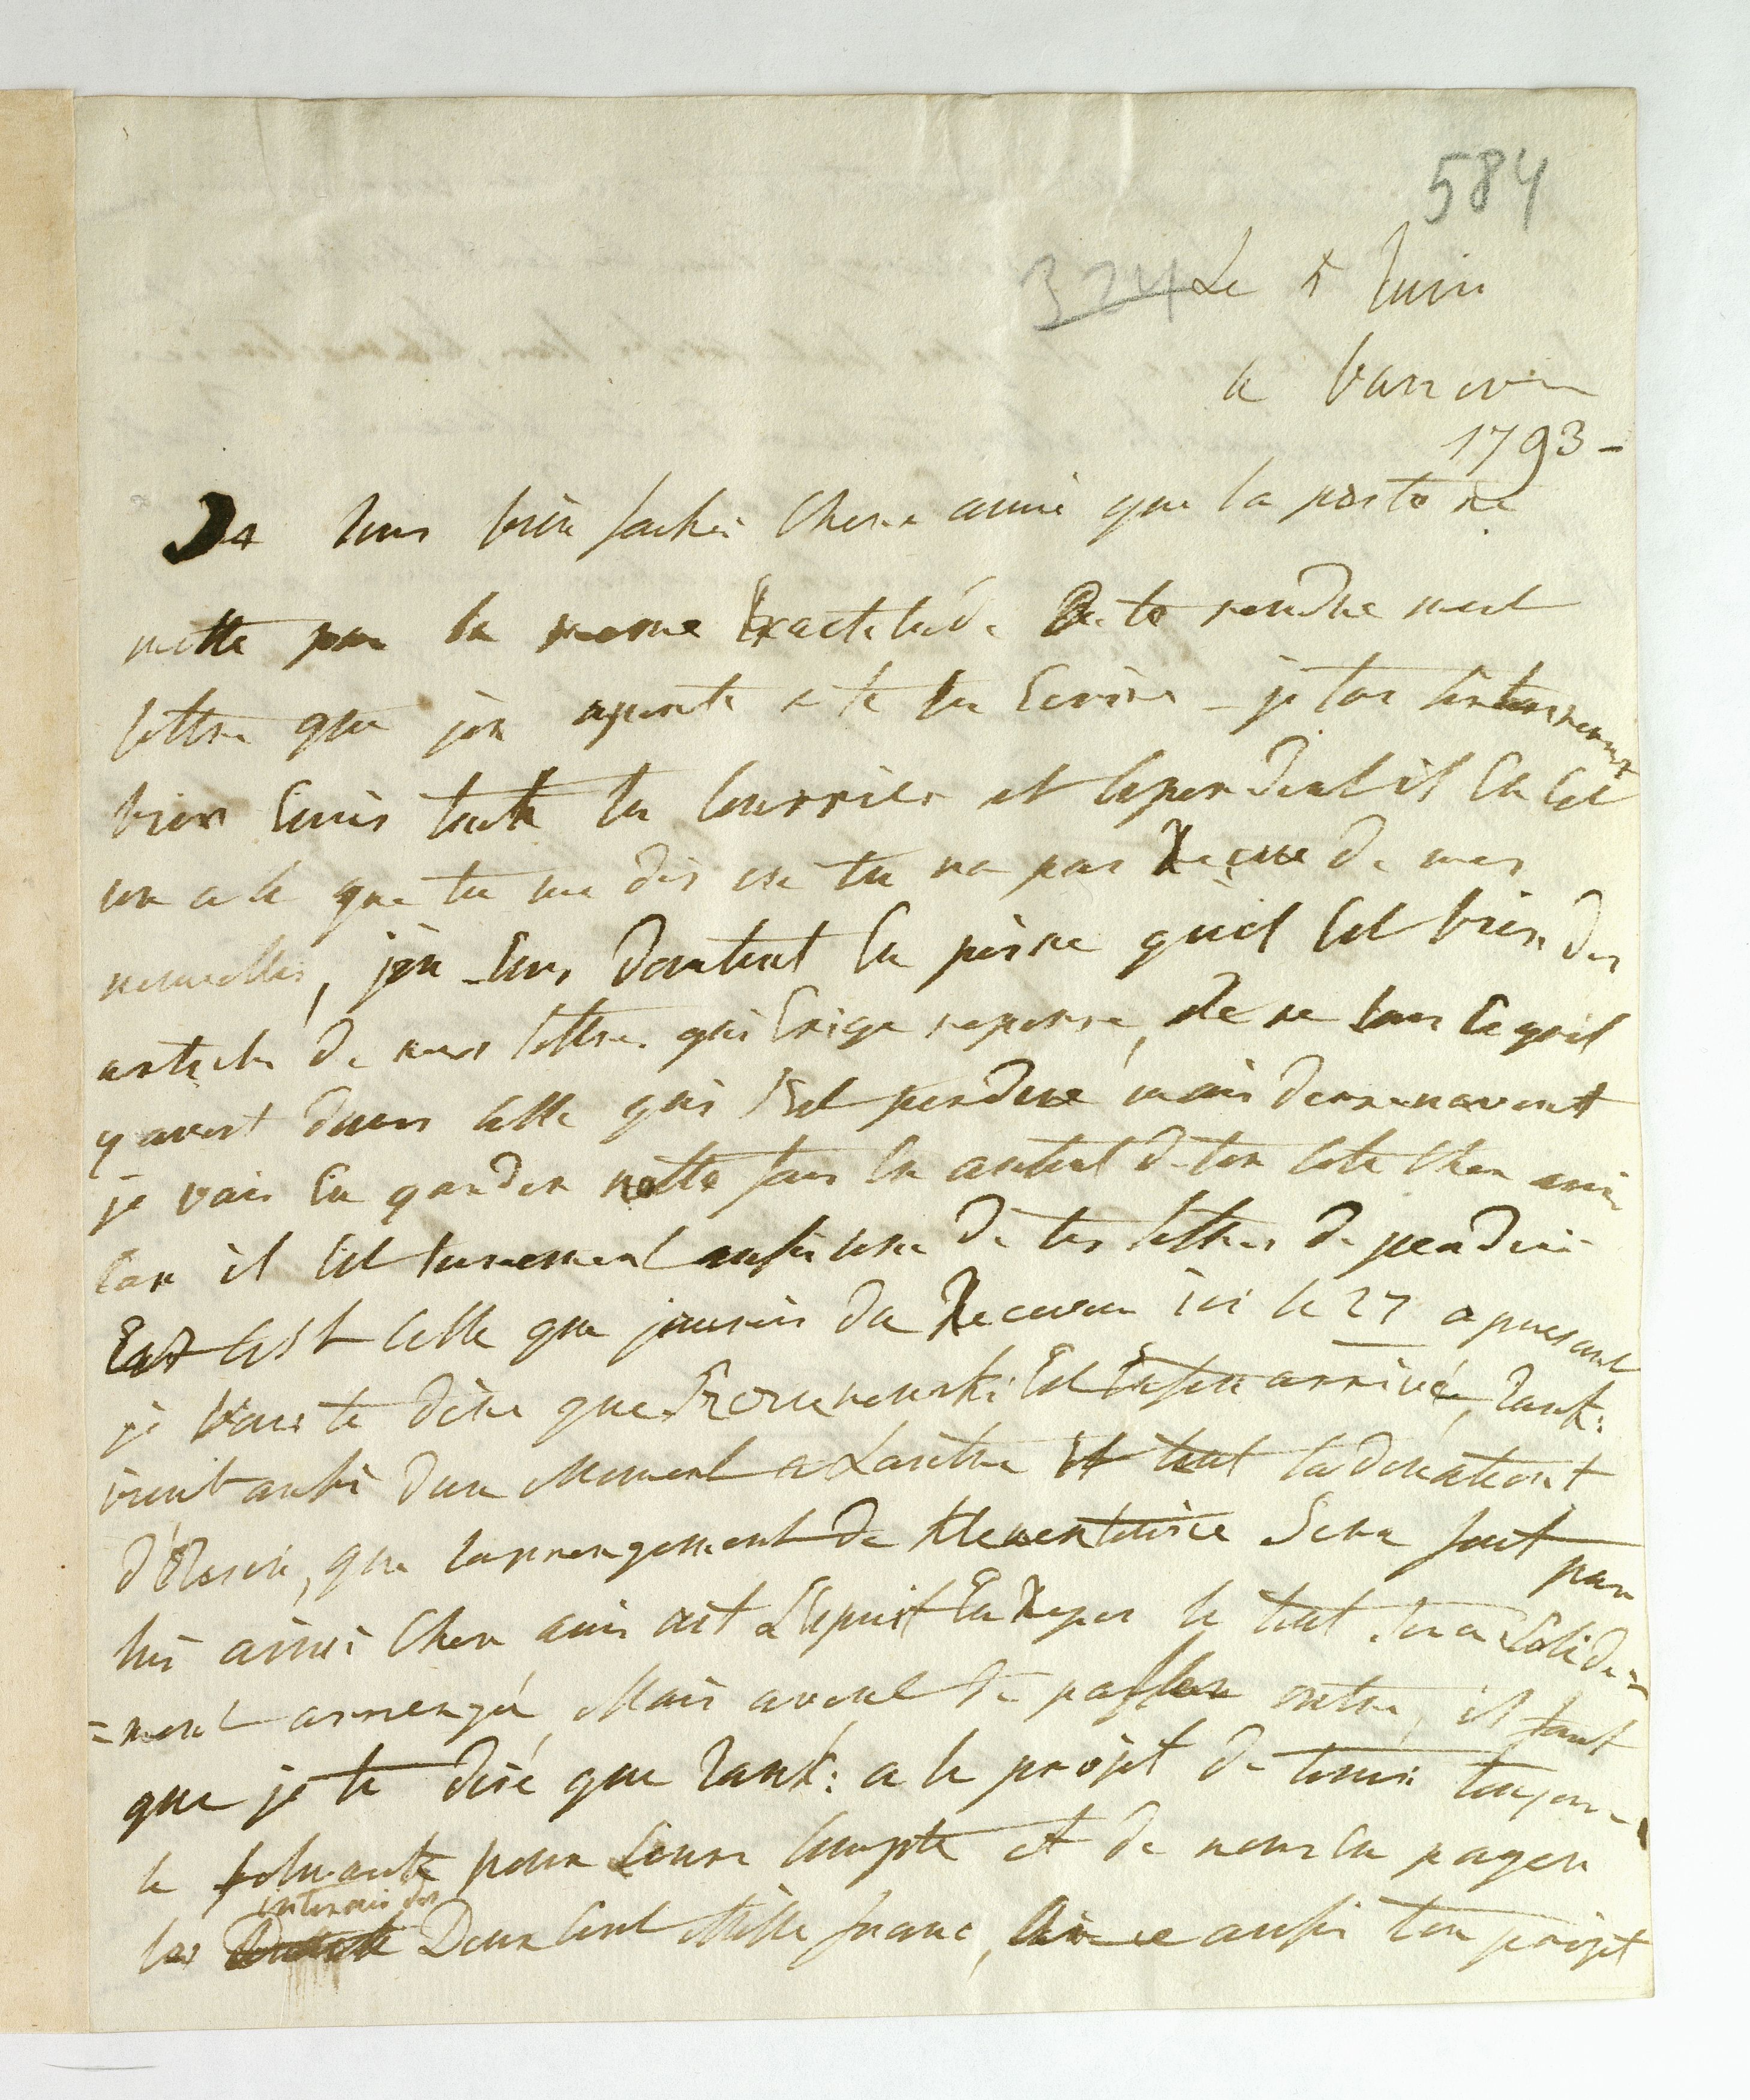 584
324 Le 5 Juin
a Varsovie
1793 -
Je suis bien fachée Chere amie que la poste ne
mette pas la meme Exactitude De te rendre mest
lettre que jen aporte a te les Ecrire - je tai surement
bien Ecris toute les Courrier et Cependent il En Est
un a ce que tu me dis ou tu na pas Recue de mes
nouvelles, jen suis dautent En peine quil Est bien des
article de mes lettres qui Exige reponse, Je ne sais Ce quil
y avest dans Celle qui sest perdue mais dorrenavent
je vais En garder notte fais En autent de ton Coté Cher ami
Car il Est surement ausi une de tes lettres de perdue
Est Cest Celle que jaurois du Recevoir ici le 27 apresent
je vais te dire que Est Enfin arrivée, Zank:
vient ausi dun Moment a Lautre Et tout la
que larrengement de Sera fait par
lui ainsi Cher ami ait LEsprit En Repos le tout sera Solide=
=ment arrengée Mais avent de passer outre, il faut
que je te dise que Zank: a le projet de tenir toujour
le pour Leurs Compte et de nous En payer
les interrai des Deux Cent Mille franc, ausi ton projet